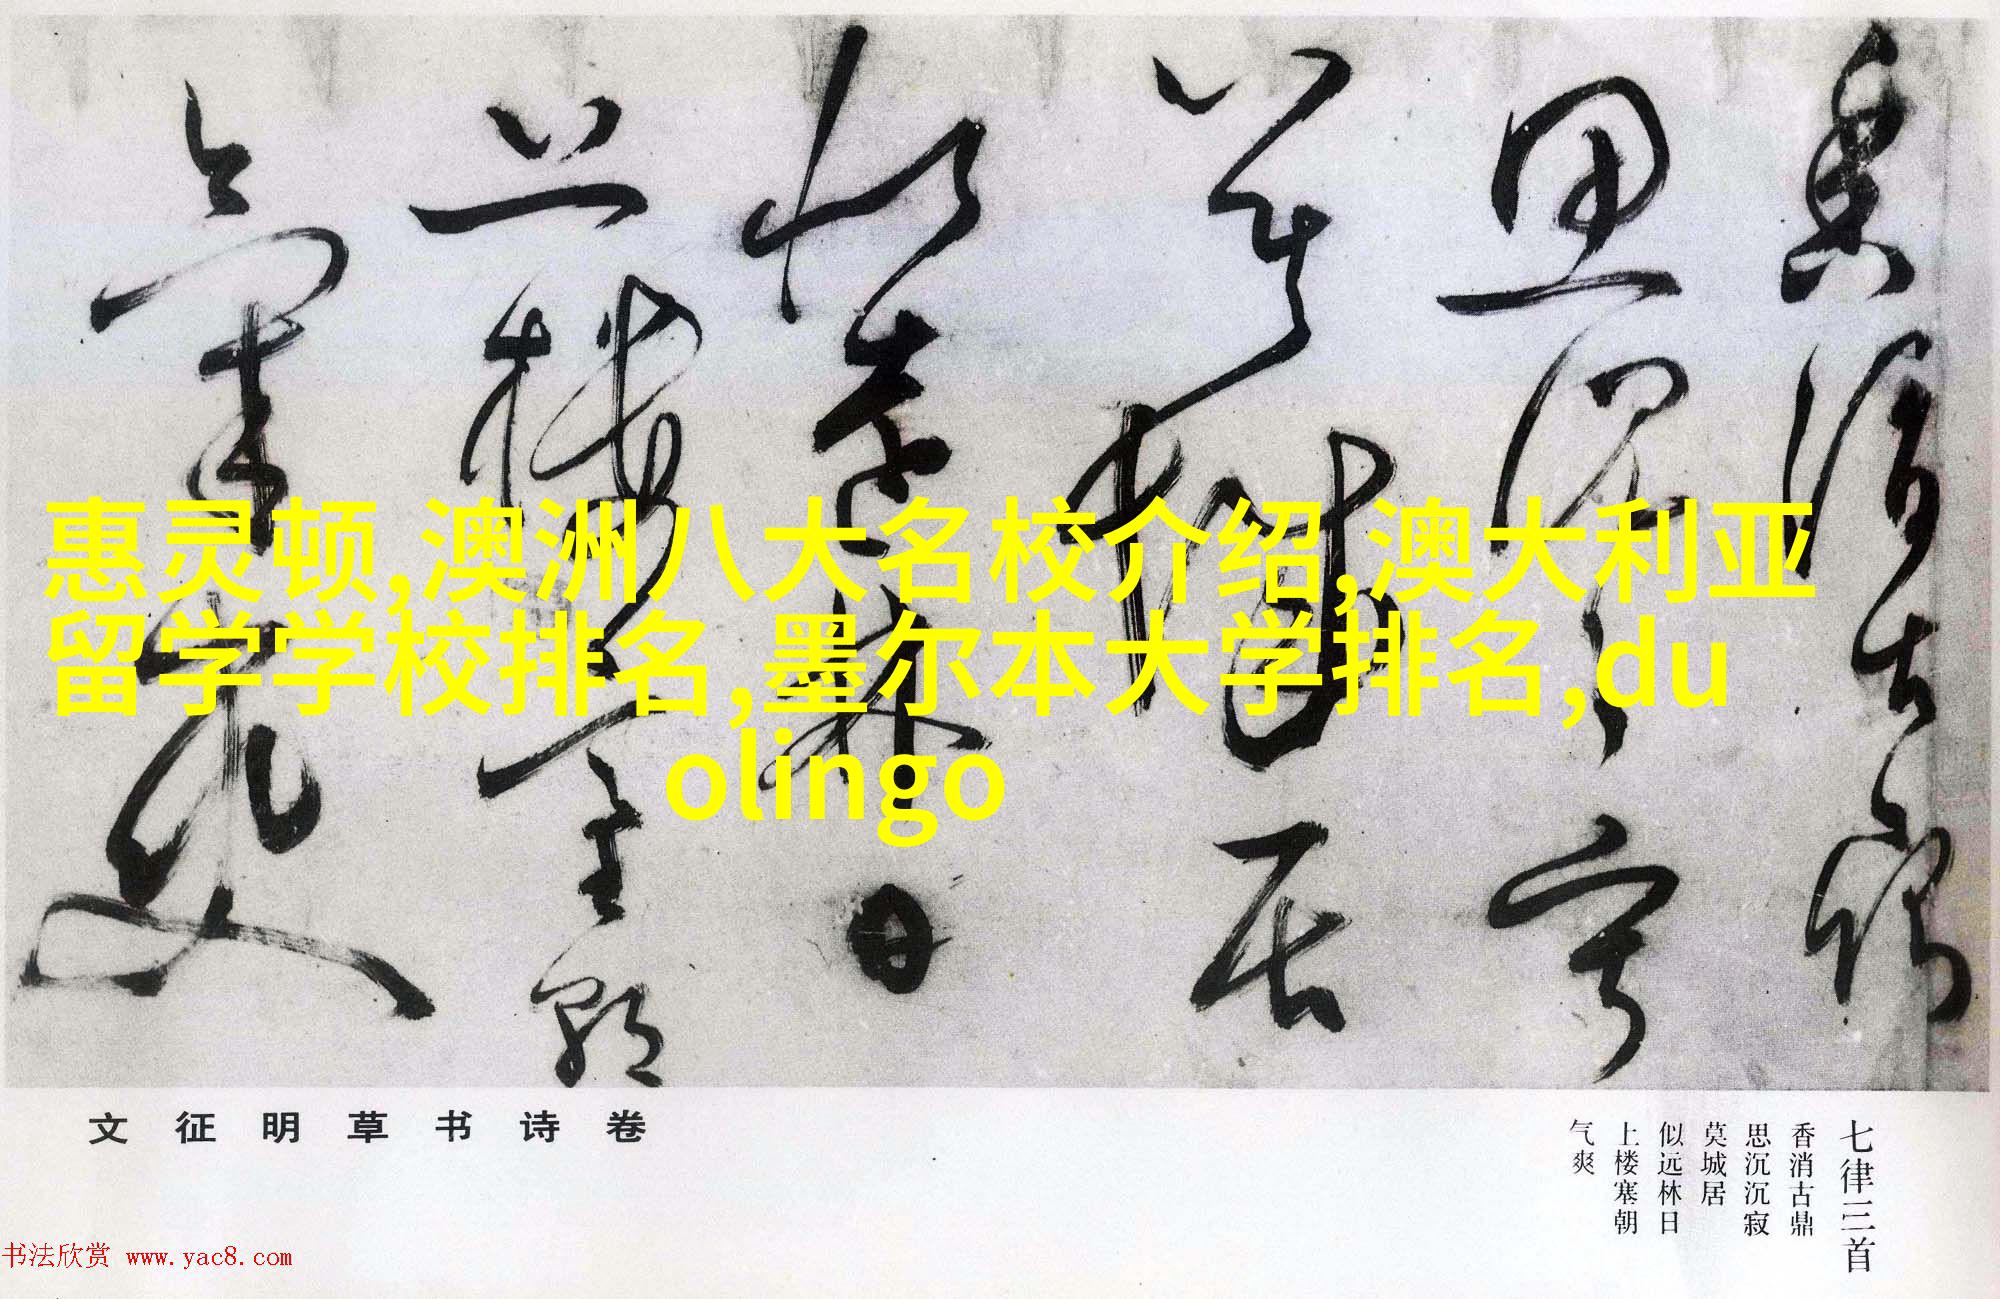 惠灵顿,澳洲八大名校介绍,澳大利亚
留学学校排名,墨尔本大学排名,du
olingo
文征明草书诗卷
七律三首
香消古鼎
思沉沉寂
莫城居
似远林日
上楼塞朝
气爽
书法欣赏 www.yac8.com